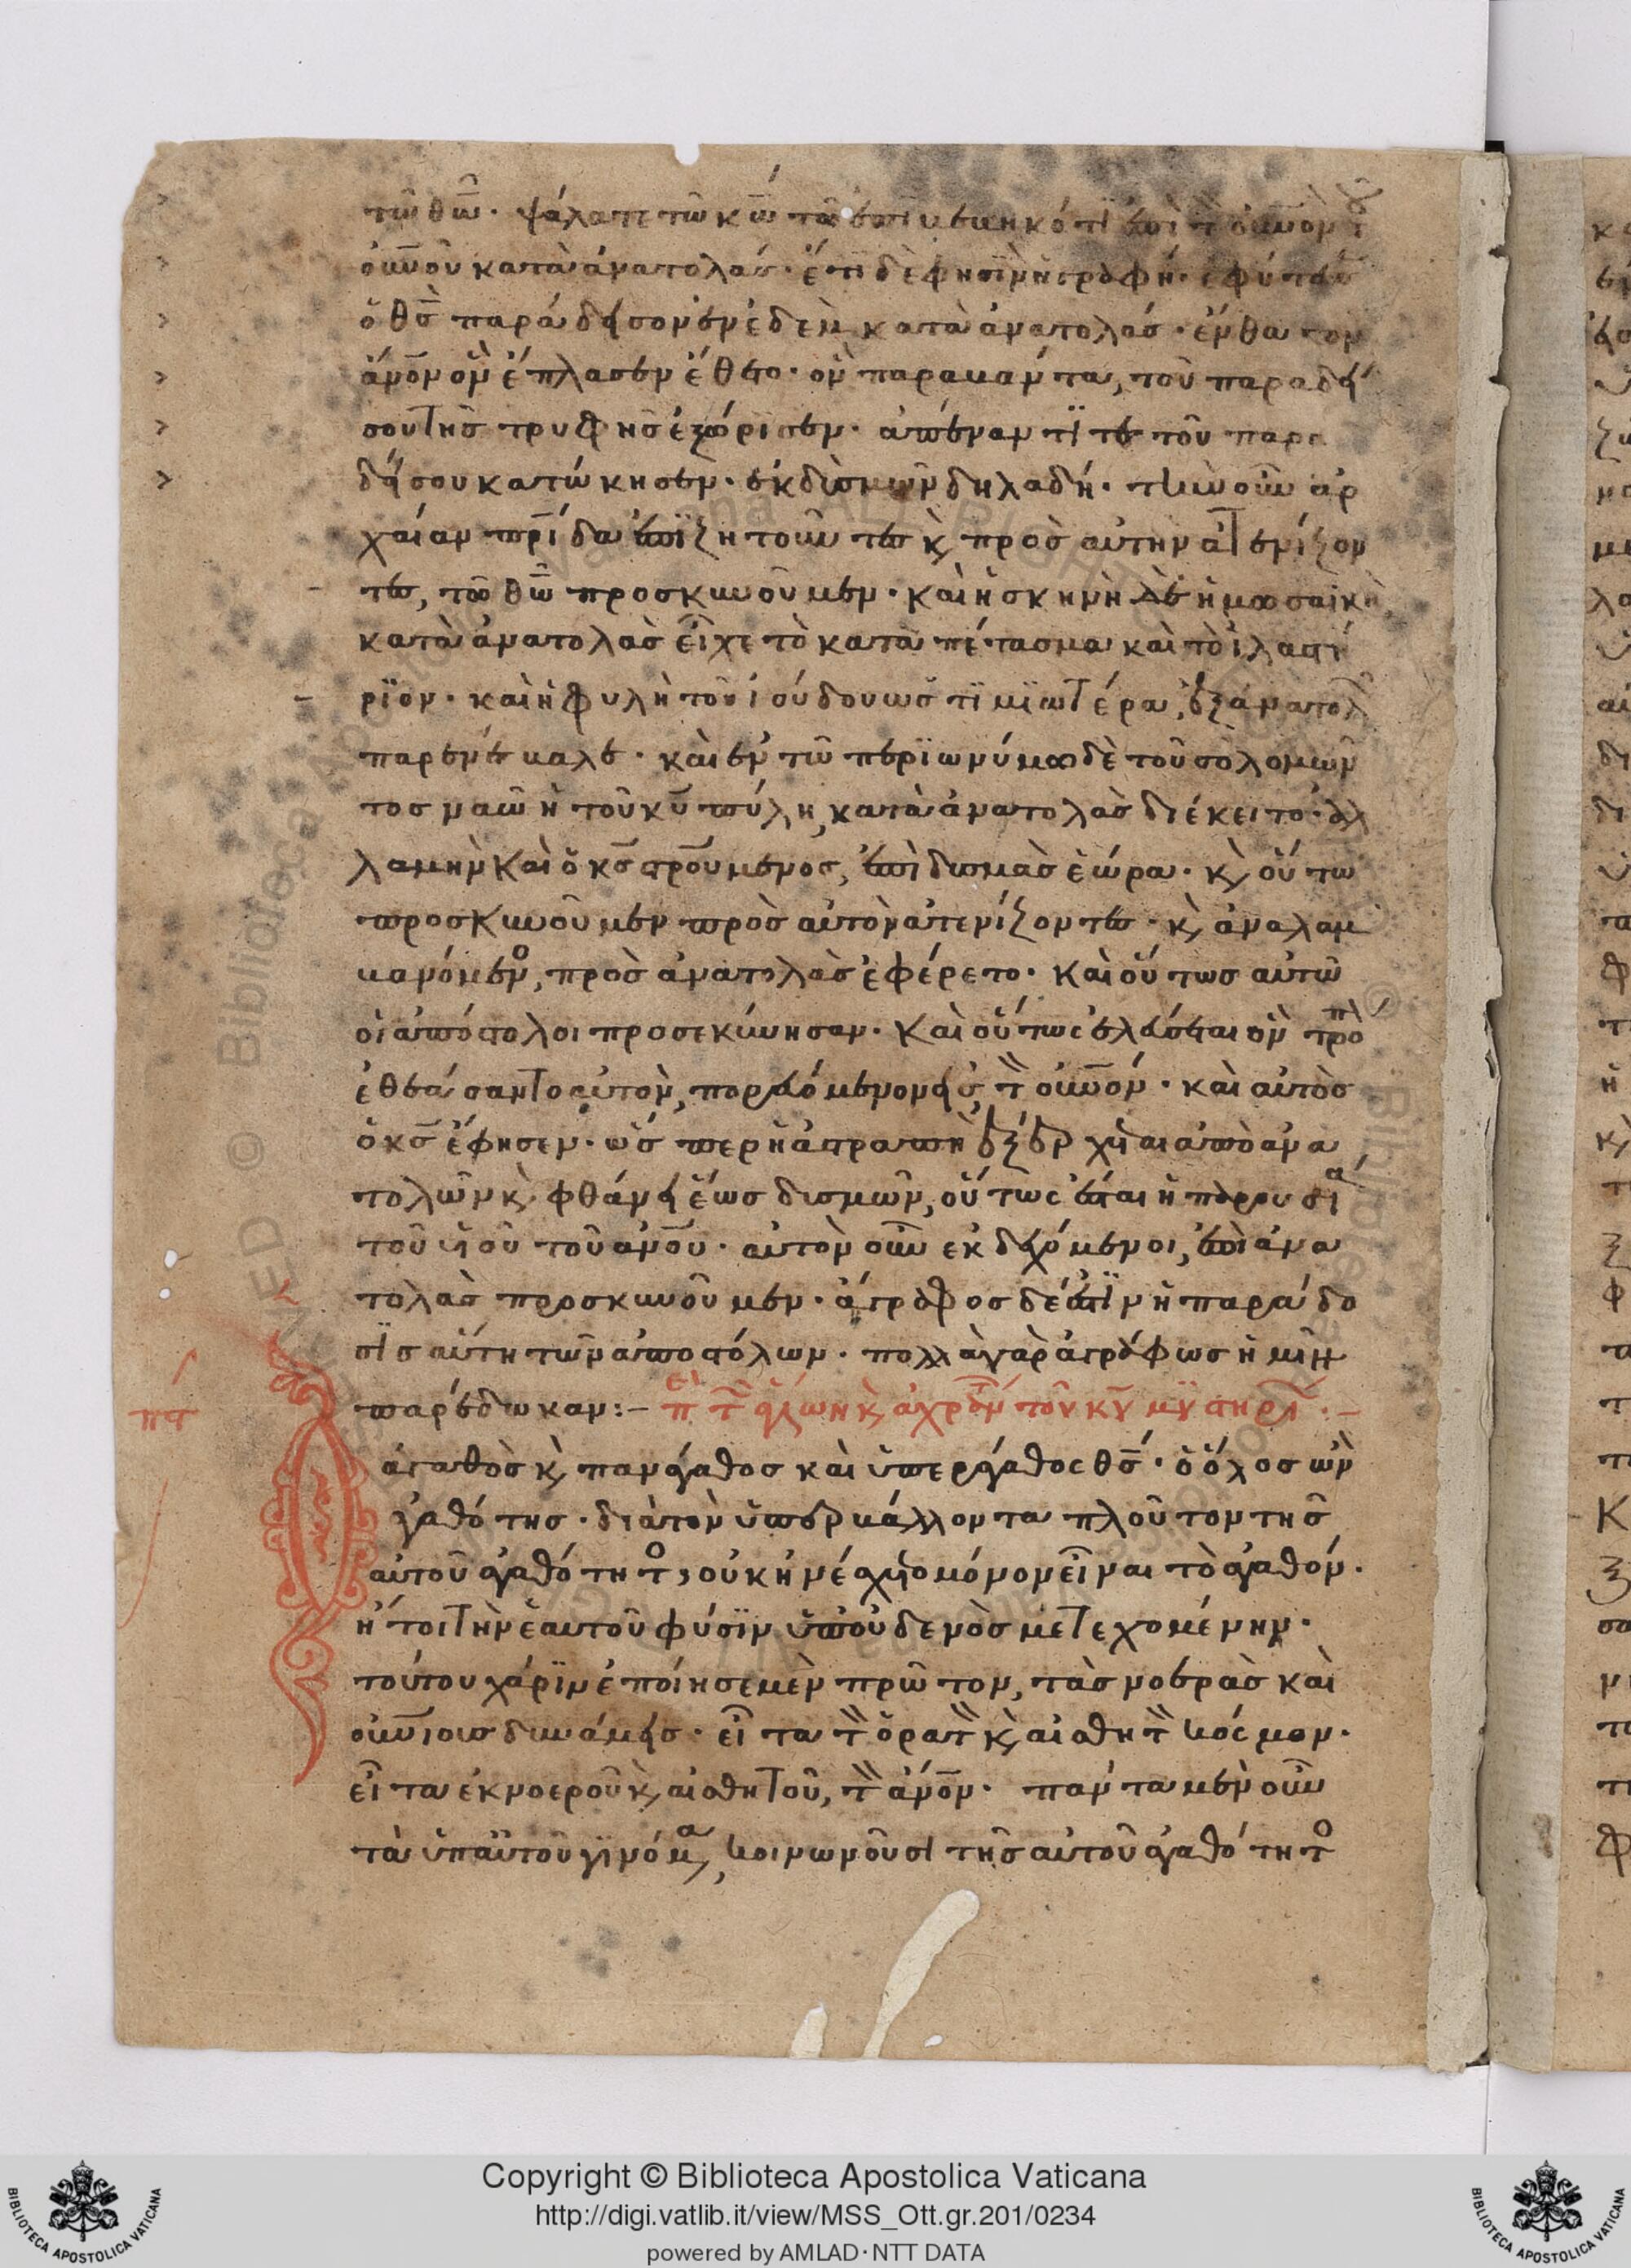 τῶ θῶ· ψάλατε τῶ κῶ τῶ ἐπιβεβηκότι ἐπὶ τὸν οὐνὸν τοῦ
οὐνοῦ κατὰ ἀνατολάς· ἔτι δέ φησὶν ἡ γραφή· ἐφύτευσεν
ὁ θς παράδεισον ἐν ἐδὲμ κατὰ ἀνατολάς· ἔνθα τὸν
ἄνον ὃν ἔπλασεν ἔθετο· ὃν παραβάντα, τοῦ παραδεί
σου τῆς τρυφῆς ἐξώρισεν· ἀπέναντί τε τοῦ παρα
δείσου κατώκησεν· ἐκ δυσμῶν δηλαδή· τὴν οὖν ἀρ
χαίαν πρίδα ἐπιζητοῦντες κ πρὸς αὐτὴν ἀτενίζον
τες, τῶ θῶ προσκυνοῦμεν· καὶ ἡ σκηνὴ δὲ ἡ μωσαϊκὴ
κατὰ ἀνατολὰς εἶχε τὸ καταπέτασμα καὶ τὸ ἱλαστή
ριον· καὶ ἡ φυλὴ τοῦ ἰούδα ὡς τιμιωτέρα, ἐξ ἀνατολῶν
παρενέβαλε· καὶ ἐν τῶ περιωνύμω δὲ τοῦ σολομῶν
τος ναῶ ἡ τοῦ κυ πύλη, κατὰ ἀνατολὰς διέκειτο· ἀλ
λαμὴν καὶ ὁ κς σρούμενος, ἐπὶ δυσμὰς ἑώρα· κ οὕτω
προσκυνοῦμεν πρὸς αὐτὸν ἀτενίζοντες· κ ἀναλαμ
βανόμενος, πρὸς ἀνατολὰς ἐφέρετο· καὶ οὕτως αὐτῶ
οἱ ἀπόστολοι προσεκύνησαν· καὶ οὕτως ἐλεύσεται ὃν τρόπον
ἐθεάσαντο αὐτὸν, πορευόμενον εἰς τὸν οὐνόν· καὶ αὐτὸς
ὁ κς ἔφησεν· ὡς περ ἡ ἀστραπὴ ἐξέρχεται ἀπὸ ἀνα
τολῶν κ φθάνει ἕως δισμῶν, οὕτως ἔσται ἡ παρουσία
τοῦ υἱοῦ τοῦ ἀνου· αὐτὸν οὖν ἐκδεχόμενοι, ἐπὶ ἀνα
τολὰς προσκυνοῦμεν· ἄγραφος δέ ἐστιν ἡ παράδο
σις αὕτη τῶν ἀποστόλων· πολλὰ γὰρ ἀγράφως ἡμῖν
παρέδωκαν:– περὶ τῶν ἁγίων κ ἀχράντων τοῦ κυ μυστηρίων·–
ἀγαθὸς κ πανάγαθος καὶ ὑπεράγαθος θς· ὁ ὅλος ὢν
ἀγαθότης· διὰ τὸν ὑπερβάλλοντα πλοῦτον τῆς
αὐτοῦ ἀγαθότητος, οὐκ ἠνέσχετο μόνον εἶναι τὸ ἀγαθόν·
ἤτοι τὴν ἑαυτοῦ φύσιν ὑπ' οὐδενὸς μετεχομένην·
τούτου χάριν ἐποίησε μὲν πρῶτον, τὰς νοερὰς καὶ
οὐνίους δυνάμεις· εἶτα τὸν ὁρατὸν κ αἰσθητὸν κόσμον·
εἶτα ἐκ νοεροῦ κ αἰσθητοῦ, τὸν ἄνον· πάντα μὲν οὖν
τὰ ὑπ' αὐτοῦ γινόμενα, κοινωνοῦσι τῆς αὐτοῦ ἀγαθότητος
Copyright © Biblioteca Apostolica Vaticana
http://digi.vatlib.it/view/MSS_Ott.gr.201/0234
powered by AMLAD·NTT DATA
BIBLIOTECA APOSTOLICA VATICANA
BIBLIOTECA APOSTOLICA VATICANA